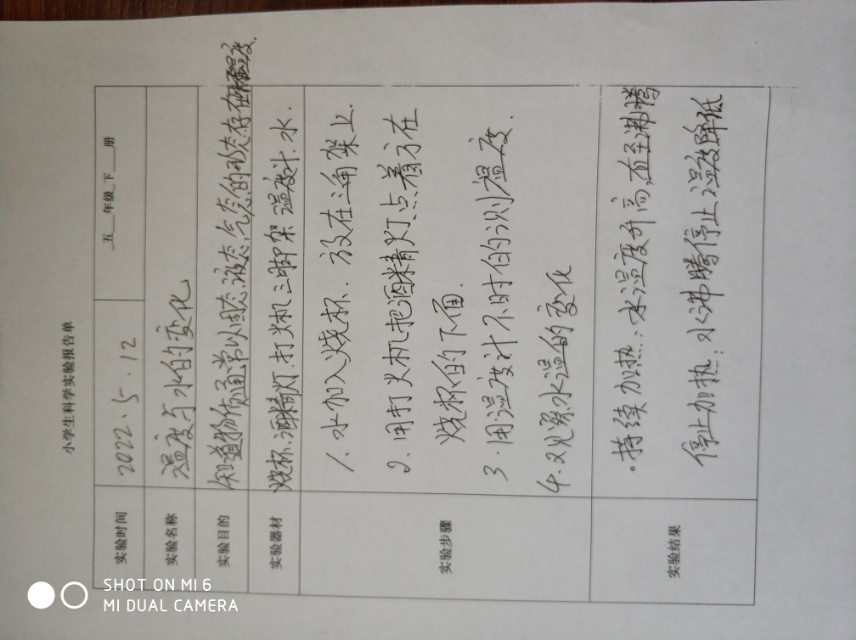 小学生科学实验报告单
实验时间 2022.5.12 五 年级 下 册
实验名称 温度与水的变化
实验目的 知道物质通常以固态,液态,气态的形态存在
实验器材 烧杯.酒精灯.打火机三脚架温度计.水.
实验步骤
1.水加入烧杯.放在三角架上.
2.用打火机把酒精灯点着放在
烧杯的下面.
3.用温度计不时但的测温度.
4.观察水温的变化
实验结果
·持续加热:水温度升高,直至沸腾
停止加热:水沸腾停止温度降低
SHOT ON MI 6
MI DUAL CAMERA